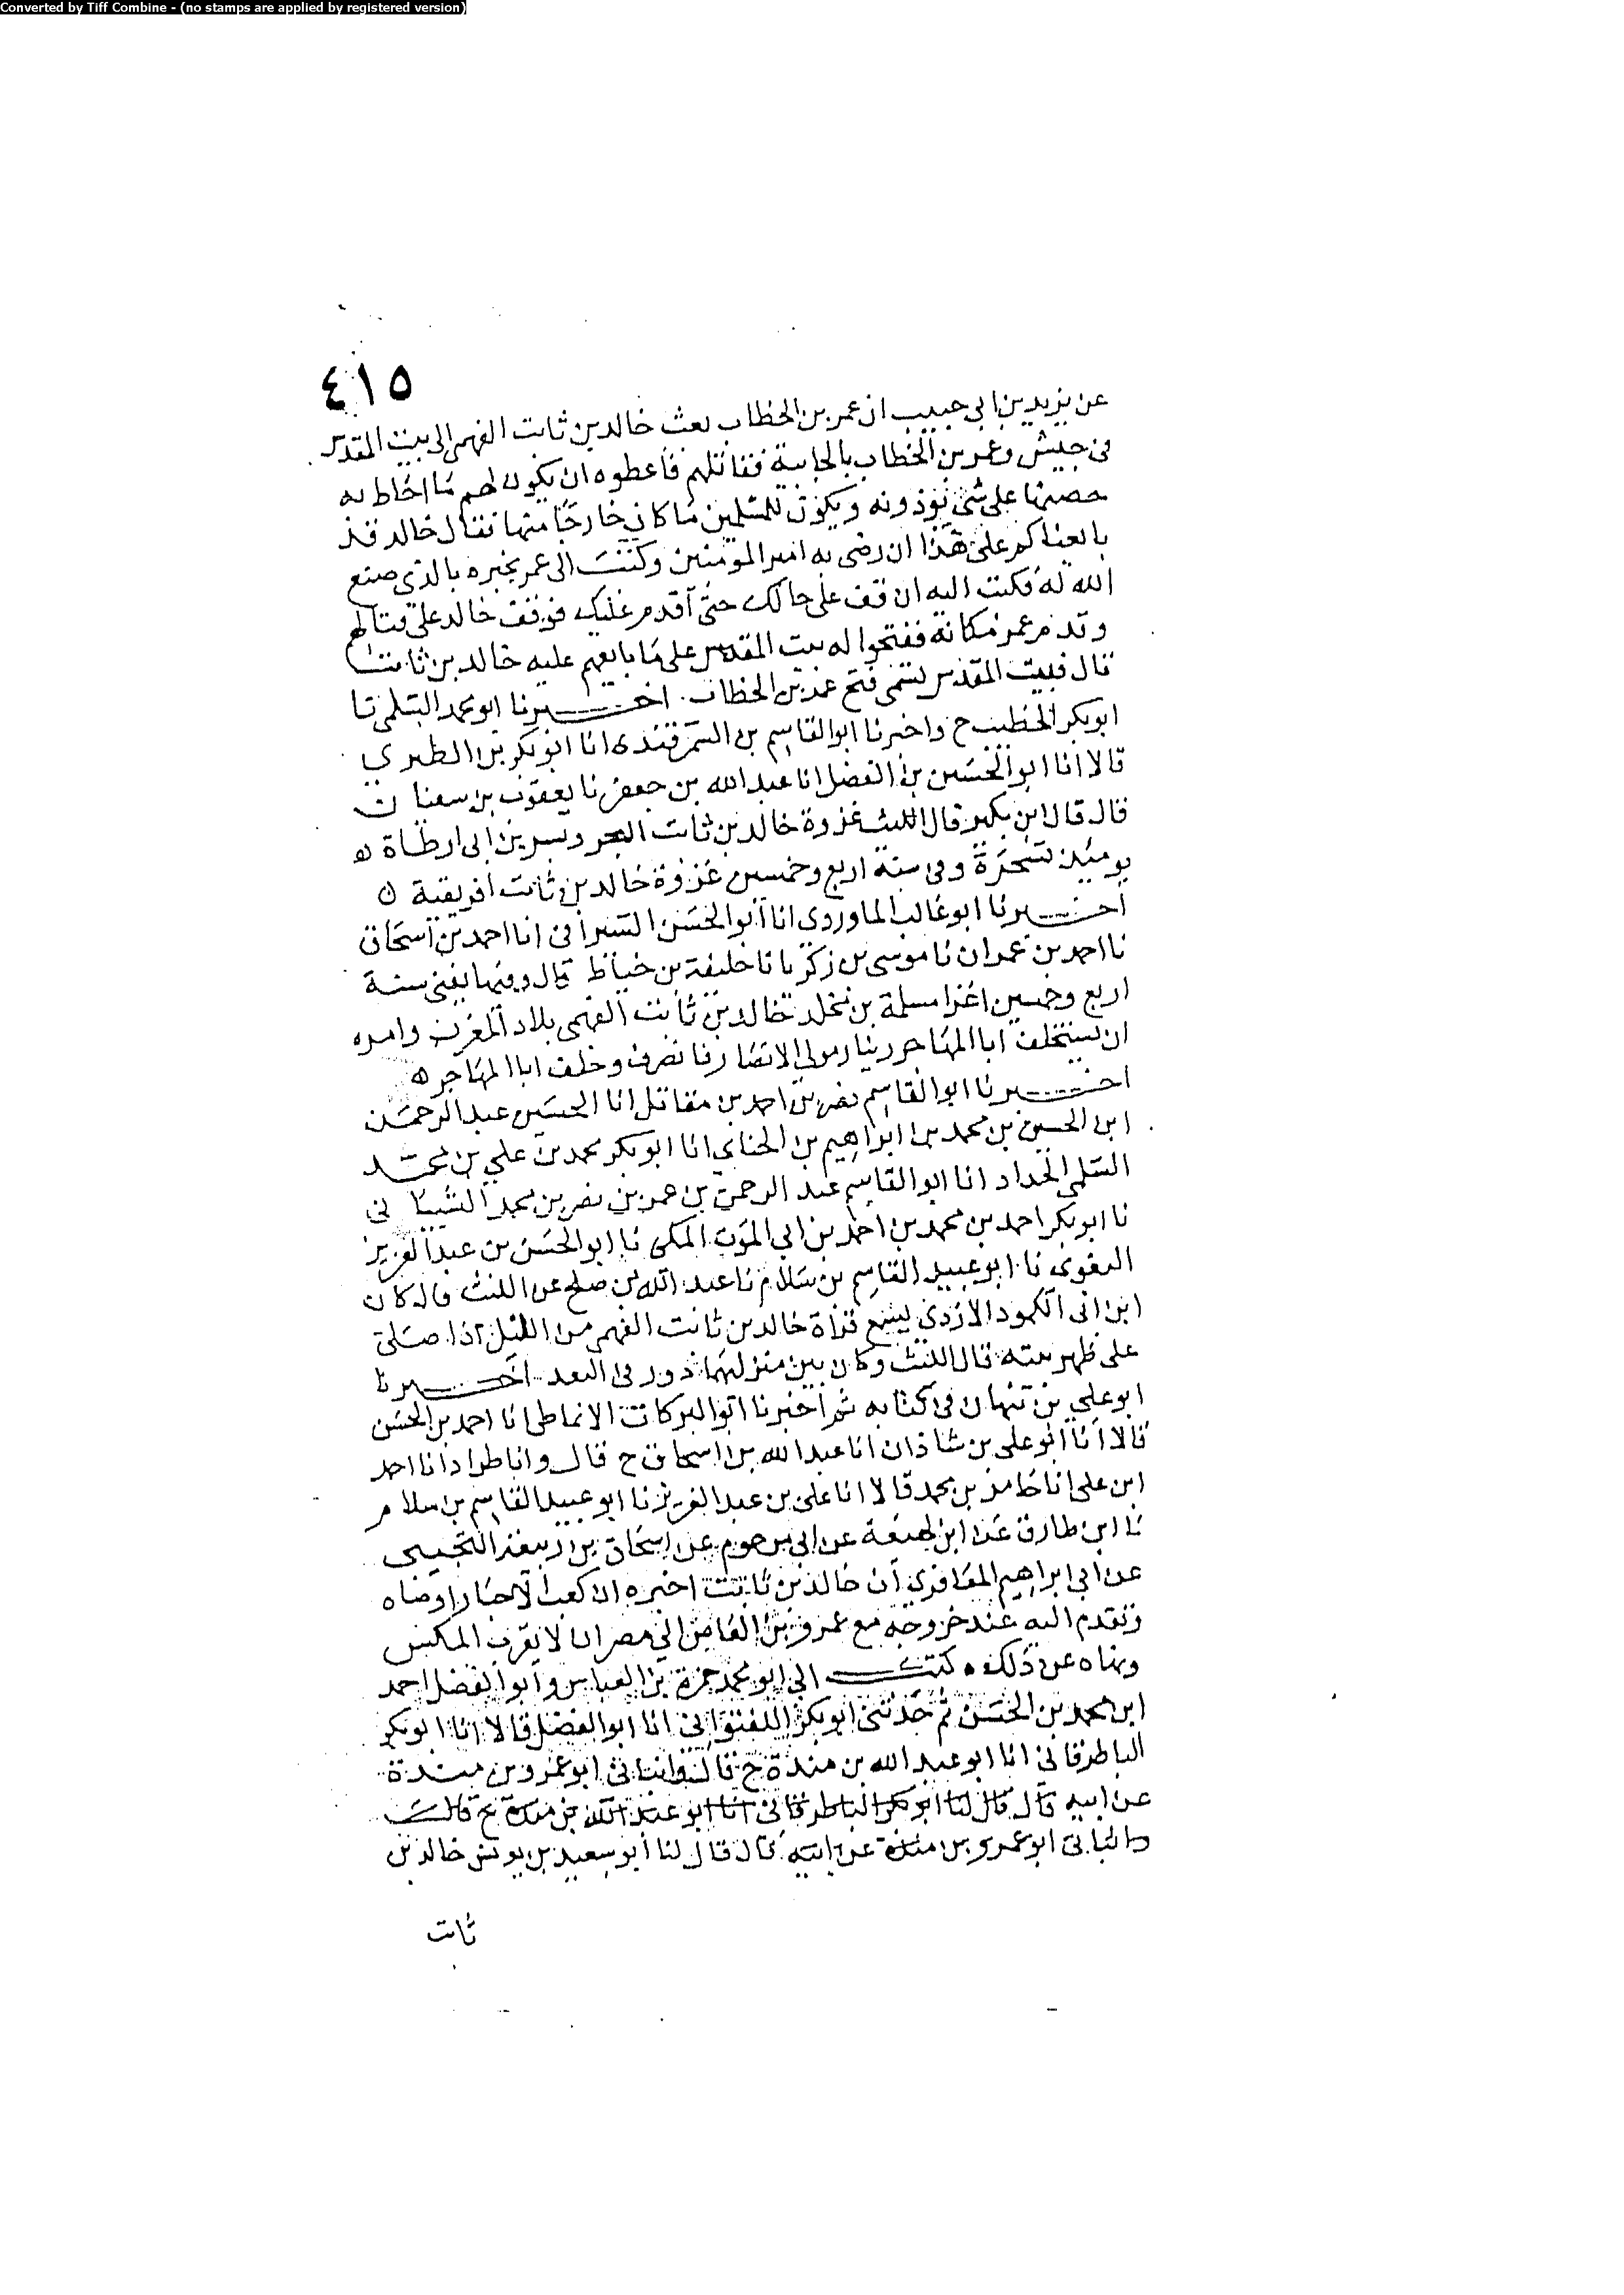 Converted by Tiff Combine - (no stamps are applied by registered version)
٤١٥
عن يزيد بن ابي حبيب ان عمر بن الخطاب بعث خالد بن ثابت الفهمي الى بيت المقدس
في جيش وعمر بن الخطاب بالجابية فقاتلهم فأعطوه ان يكون لهم ما احاط به
حصنها على شي يؤدونه ويكون للمسلمين ما كان خارجا منها فقال خالد قد
بايعناكم على هذا ان رضى به امير المومنين وكتب الى عمر يخبره بالذي صنع
الله له فكتب اليه ان قف على حالك حتى اقدم عليك فوقف خالد على قتالهم
وقدم عمر مكانه ففتحوا له بيت المقدس على ما بايعهم عليه خالد بن ثابت
قال فبيت المقدس يسمى فتح عمر بن الخطاب اخبرنا ابو محمد السلمي نا
ابو بكر الخطيب ح واخبرنا ابو القاسم بن السمرقندى انا ابو بكر بن الطبري
قالا انا ابو الحسين بن الفضل انا عبد الله بن جعفر نا يعقوب بن سفيان
قال قال ابن بكير قال الليث غزوة خالد بن ثابت البحر وبسر بن ابى ارطاة
يومئذ وفى سنة اربع وخمسين غزوة خالد بن ثابت افريقية
اخبرنا ابو غالب الماوردى انا ابو الحسن السيرافي انا احمد بن اسحاق
نا احمد بن عمران نا موسى بن زكريا نا خليفة بن خياط قال وفيها يعني سنة
اربع وخمسين اغزا مسلمة بن مخلد خالد بن ثابت الفهمي بلاد المغرب وامره
ان يستخلف ابا المهاجر دينار مولى الانصار فانصرف وخلف ابا المهاجر
اخبرنا ابو القاسم نصر بن احمد بن مقاتل انا الحسين عبد الرحمن
ابن الحسين بن محمد بن ابراهيم بن الحنائي انا ابو بكر محمد بن علي بن محمد
السلمي الحداد انا ابو القاسم عبد الرحمن بن عمر بن نصر بن محمد الشيباني
نا ابو بكر احمد بن محمد بن احمد بن ابي الموت المكى نا ابو الحسن بن عبد العزيز
البغوى نا ابو عبيد القاسم بن سلام نا عبد الله بن صلح عن الليث قال كان
ابن ابى الكنود الازدى يسمع قراة خالد بن ثابت الفهمي من الليل اذا صلى
على ظهر بيته قال الليث وكان بين منزليهما دور في البعد اخبرنا
ابو علي بن نبهان في كتابه ثم اخبرنا ابو البركات الانماطي انا احمد بن الحسن
قالا انا ابو على بن شاذان انا عبد الله بن اسحاق ح قال وانا طراد انا احمد
ابن على انا حامد بن محمد قالا انا على بن عبد العزيز نا ابو عبيد القاسم بن سلام
نا ابن طارق عن ابن لهيعة عن ابى مرحوم عن اسحاق بن ربيعة التجيبى
عن ابي ابراهيم المعافري ان خالد بن ثابت اخبره ان كعب الاحبار اوصاه
وتقدم اليه عند خروجه مع عمرو بن العاص الى مصر ان لا يقرب المكس
ونهاه عن ذلك كتب الى ابو محمد حمزة بن العباس وابو الفضل احمد
ابن محمد بن الحسن ثم حدثني ابو بكر اللفتواني انا ابو الفضل قالا انا ابو بكر
الباطرقاني انا ابو عبد الله بن مندة ح قال وانباني ابو عمرو بن مندة
عن ابيه قال قال لنا ابو بكر الباطرقاني انا ابو عبد الله بن مندة ح قال
وانباني ابو عمرو بن مندة عن ابيه قال قال لنا ابو سعيد بن يونس خالد بن
ثابت